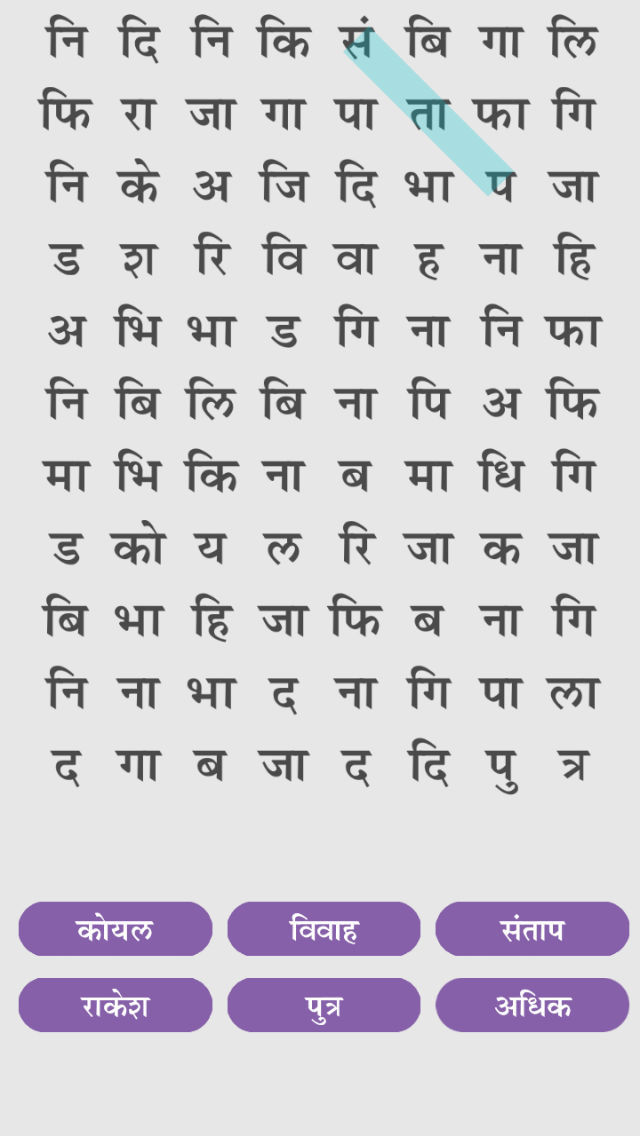 नि दि नि कि सं बि गा लि
फि रा जा गा पा ता फा गि
नि के अ जि दि भा प जा
ड श रि वि वा ह ना हि
अ भि भा ड गि ना नि फा
नि बि लि बि ना पि अ फि
मा भि कि ना ब मा धि गि
ड को य ल रि जा क जा
बि भा हि जा फि ब ना गि
नि ना भा द ना गि पा ला
द गा ब जा द दि पु त्र
कोयल विवाह संताप
राकेश पुत्र अधिक